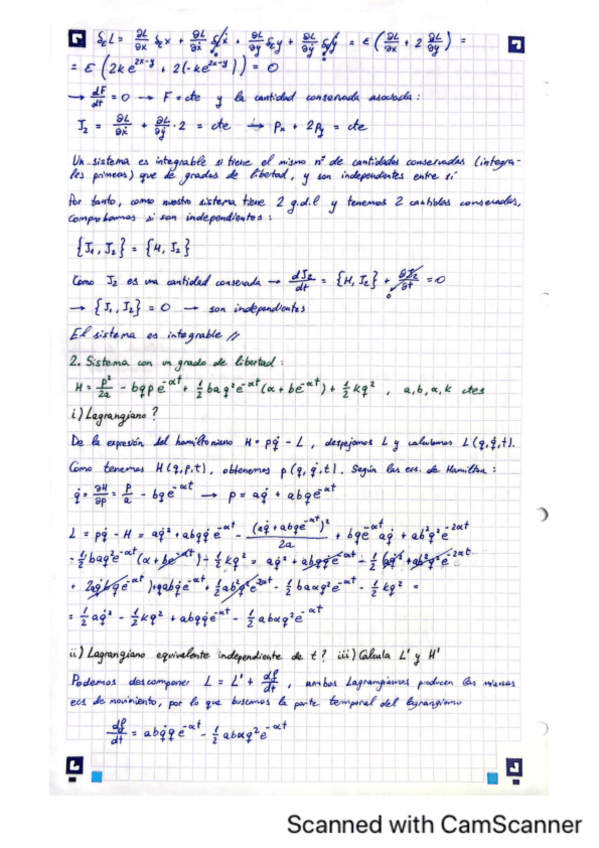 δ_ε L = ∂L/∂x δ_ε x + ∂L/∂ẋ δ_ε ẋ + ∂L/∂y δ_ε y + ∂L/∂ẏ δ_ε ẏ = ε (∂L/∂x + 2 ∂L/∂y) =
= ε (2k e^{2x-y} + 2(-k e^{2x-y})) = 0
→ dF/dt = 0 → F = cte y la cantidad conservada asociada:
I₂ = ∂L/∂ẋ + ∂L/∂ẏ · 2 = cte → Pₓ + 2P_y = cte
Un sistema es integrable si tiene el mismo nº de cantidades conservadas (integra-
les primeras) que de grados de libertad, y son independientes entre sí
Por tanto, como nuestro sistema tiene 2 g.d.l y tenemos 2 cantidades conservadas,
comprobamos si son independientes:
{I₁, I₂} = {H, I₂}
Como I₂ es una cantidad conservada → dI₂/dt = {H, I₂} + ∂I₂/∂t = 0
→ {I₁, I₂} = 0 → son independientes
El sistema es integrable //
2. Sistema con un grado de libertad:
H = p²/2a - bqp e^{-αt} + 1/2 ba q² e^{-αt} (α + b e^{-αt}) + 1/2 kq² , a, b, α, k ctes
i) Lagrangiano?
De la expresión del hamiltoniano H = pq̇ - L, despejamos L y calculamos L(q, q̇, t).
Como tenemos H(q, p, t), obtenemos p(q, q̇, t). Según las ecs. de Hamilton:
q̇ = ∂H/∂p = p/a - bq e^{-αt} → p = aq̇ + abq e^{-αt}
L = pq̇ - H = aq̇² + abqq̇ e^{-αt} - (aq̇ + abq e^{-αt})²/2a + bq e^{-αt} aq̇ + ab²q² e^{-2αt}
- 1/2 baq² e^{-αt} (α + b e^{-αt}) - 1/2 kq² = aq̇² + abqq̇ e^{-αt} - 1/2 (aq̇² + ab²q² e^{-2αt}
+ 2aq̇bq e^{-αt}) + qabq̇ e^{-αt} + 1/2 ab²q² e^{-2αt} - 1/2 baαq² e^{-αt} - 1/2 kq² =
= 1/2 aq̇² - 1/2 kq² + abqq̇ e^{-αt} - 1/2 abαq² e^{-αt}
ii) Lagrangiano equivalente independiente de t? iii) Calcula L' y H'
Podemos descomponer L = L' + df/dt , ambos Lagrangianos producen las mismas
ecs de movimiento, por lo que buscamos la parte temporal del lagrangiano
df/dt = abq̇q e^{-αt} - 1/2 abαq² e^{-αt}
Scanned with CamScanner